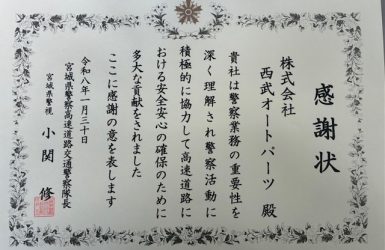 感謝状
株式会社
西武オートパーツ 殿
貴社は警察業務の重要性を
深く理解され警察活動に
積極的に協力して高速道路に
おける安全安心の確保のために
多大な貢献をされました
ここに感謝の意を表します
令和八年一月三十日
宮城県警察高速道路交通警察隊長
宮城県警視 小関 修